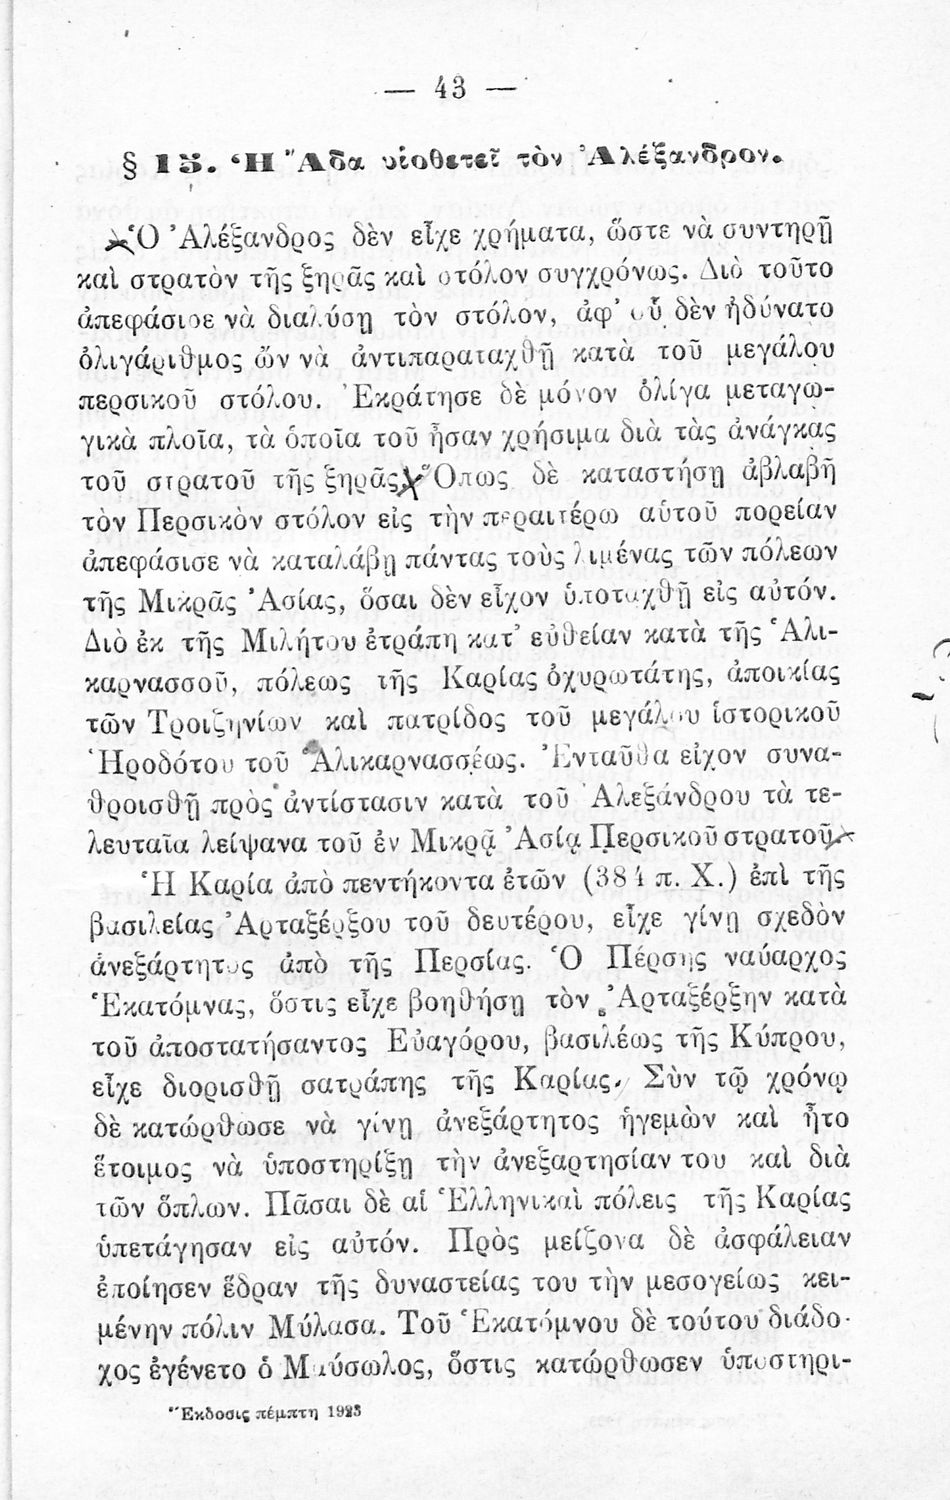 — 43 —
§ 15. Ἡ Ἄδα υἱοθετεῖ τὸν Ἀλέξανδρον.
Ὁ Ἀλέξανδρος δὲν εἶχε χρήματα, ὥστε νὰ συντηρῇ
καὶ στρατὸν τῆς ξηρᾶς καὶ στόλον συγχρόνως. Διὸ τοῦτο
ἀπεφάσισε νὰ διαλύσῃ τὸν στόλον, ἀφ’ οὗ δὲν ἠδύνατο
ὀλιγάριθμος ὢν νὰ ἀντιπαραταχθῇ κατὰ τοῦ μεγάλου
περσικοῦ στόλου. Ἐκράτησε δὲ μόνον ὀλίγα μεταγω-
γικὰ πλοῖα, τὰ ὁποῖα τοῦ ἦσαν χρήσιμα διὰ τὰς ἀνάγκας
τοῦ στρατοῦ τῆς ξηρᾶς Ὅπως δὲ καταστήσῃ ἀβλαβῆ
τὸν Περσικὸν στόλον εἰς τὴν περαιτέρω αὐτοῦ πορείαν
ἀπεφάσισε νὰ καταλάβῃ πάντας τοὺς λιμένας τῶν πόλεων
τῆς Μικρᾶς Ἀσίας, ὅσαι δὲν εἶχον ὑποταχθῇ εἰς αὐτόν.
Διὸ ἐκ τῆς Μιλήτου ἐτράπη κατ’ εὐθείαν κατὰ τῆς Ἁλι-
καρνασσοῦ, πόλεως τῆς Καρίας ὀχυρωτάτης, ἀποικίας
τῶν Τροιζηνίων καὶ πατρίδος τοῦ μεγάλου ἱστορικοῦ
Ἡροδότου τοῦ Ἁλικαρνασσέως. Ἐνταῦθα εἶχον συνα-
θροισθῆ πρὸς ἀντίστασιν κατὰ τοῦ Ἀλεξάνδρου τὰ τε-
λευταῖα λείψανα τοῦ ἐν Μικρᾷ Ἀσίᾳ Περσικοῦ στρατοῦ
Ἡ Καρία ἀπὸ πεντήκοντα ἐτῶν (384 π. Χ.) ἐπὶ τῆς
βασιλείας Ἀρταξέρξου τοῦ δευτέρου, εἶχε γίνῃ σχεδὸν
ἀνεξάρτητος ἀπὸ τῆς Περσίας. Ὁ Πέρσης ναύαρχος
Ἑκατόμνας, ὅστις εἶχε βοηθήσῃ τὸν Ἀρταξέρξην κατὰ
τοῦ ἀποστατήσαντος Εὐαγόρου, βασιλέως τῆς Κύπρου,
εἶχε διορισθῇ σατράπης τῆς Καρίας. Σὺν τῷ χρόνῳ
δὲ κατώρθωσε νὰ γίνῃ ἀνεξάρτητος ἡγεμὼν καὶ ἦτο
ἕτοιμος νὰ ὑποστηρίξῃ τὴν ἀνεξαρτησίαν του καὶ διὰ
τῶν ὅπλων. Πᾶσαι δὲ αἱ Ἑλληνικαὶ πόλεις τῆς Καρίας
ὑπετάγησαν εἰς αὐτόν. Πρὸς μείζονα δὲ ἀσφάλειαν
ἐποίησεν ἕδραν τῆς δυναστείας του τὴν μεσογείως κει-
μένην πόλιν Μύλασα. Τοῦ Ἑκατόμνου δὲ τούτου διάδο-
χος ἐγένετο ὁ Μαύσωλος, ὅστις κατώρθωσεν ὑποστηρι-
Ἔκδοσις πέμπτη 1923